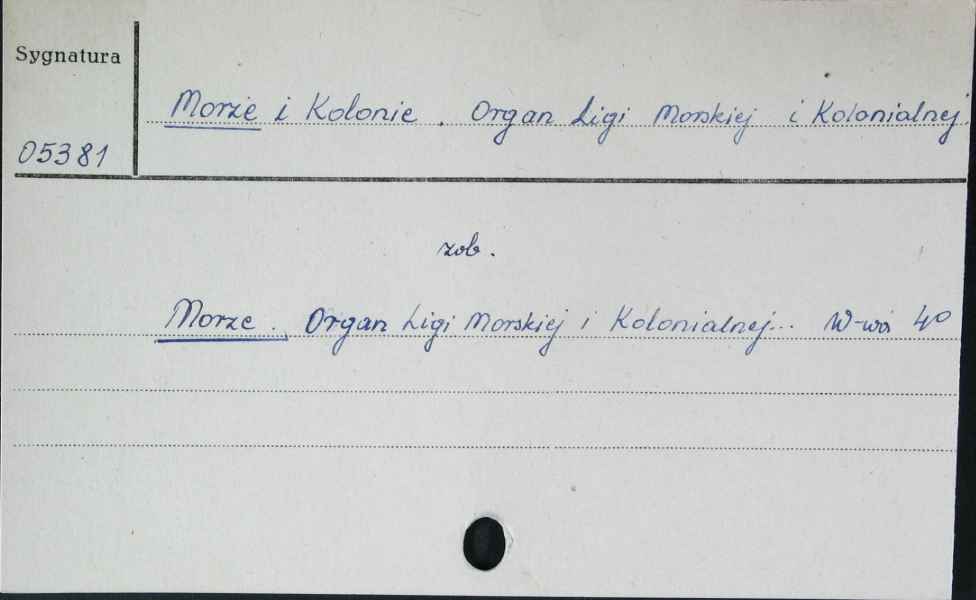 Sygnatura
Morze i Kolonie. Organ Ligi Morskiej i Kolonialnej.
05381
zob.
Morze. Organ Ligi Morskiej i Kolonialnej... W-wa 40